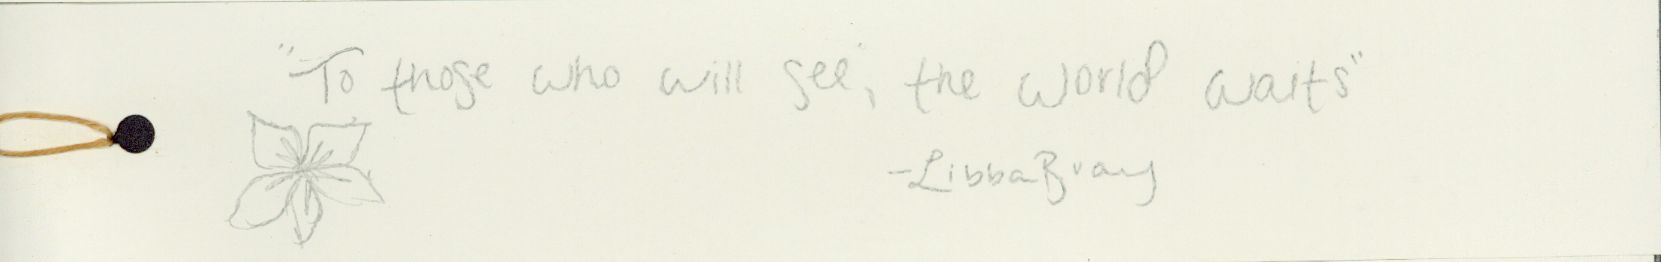 "To those who will see, the world waits"
-Libba Bray